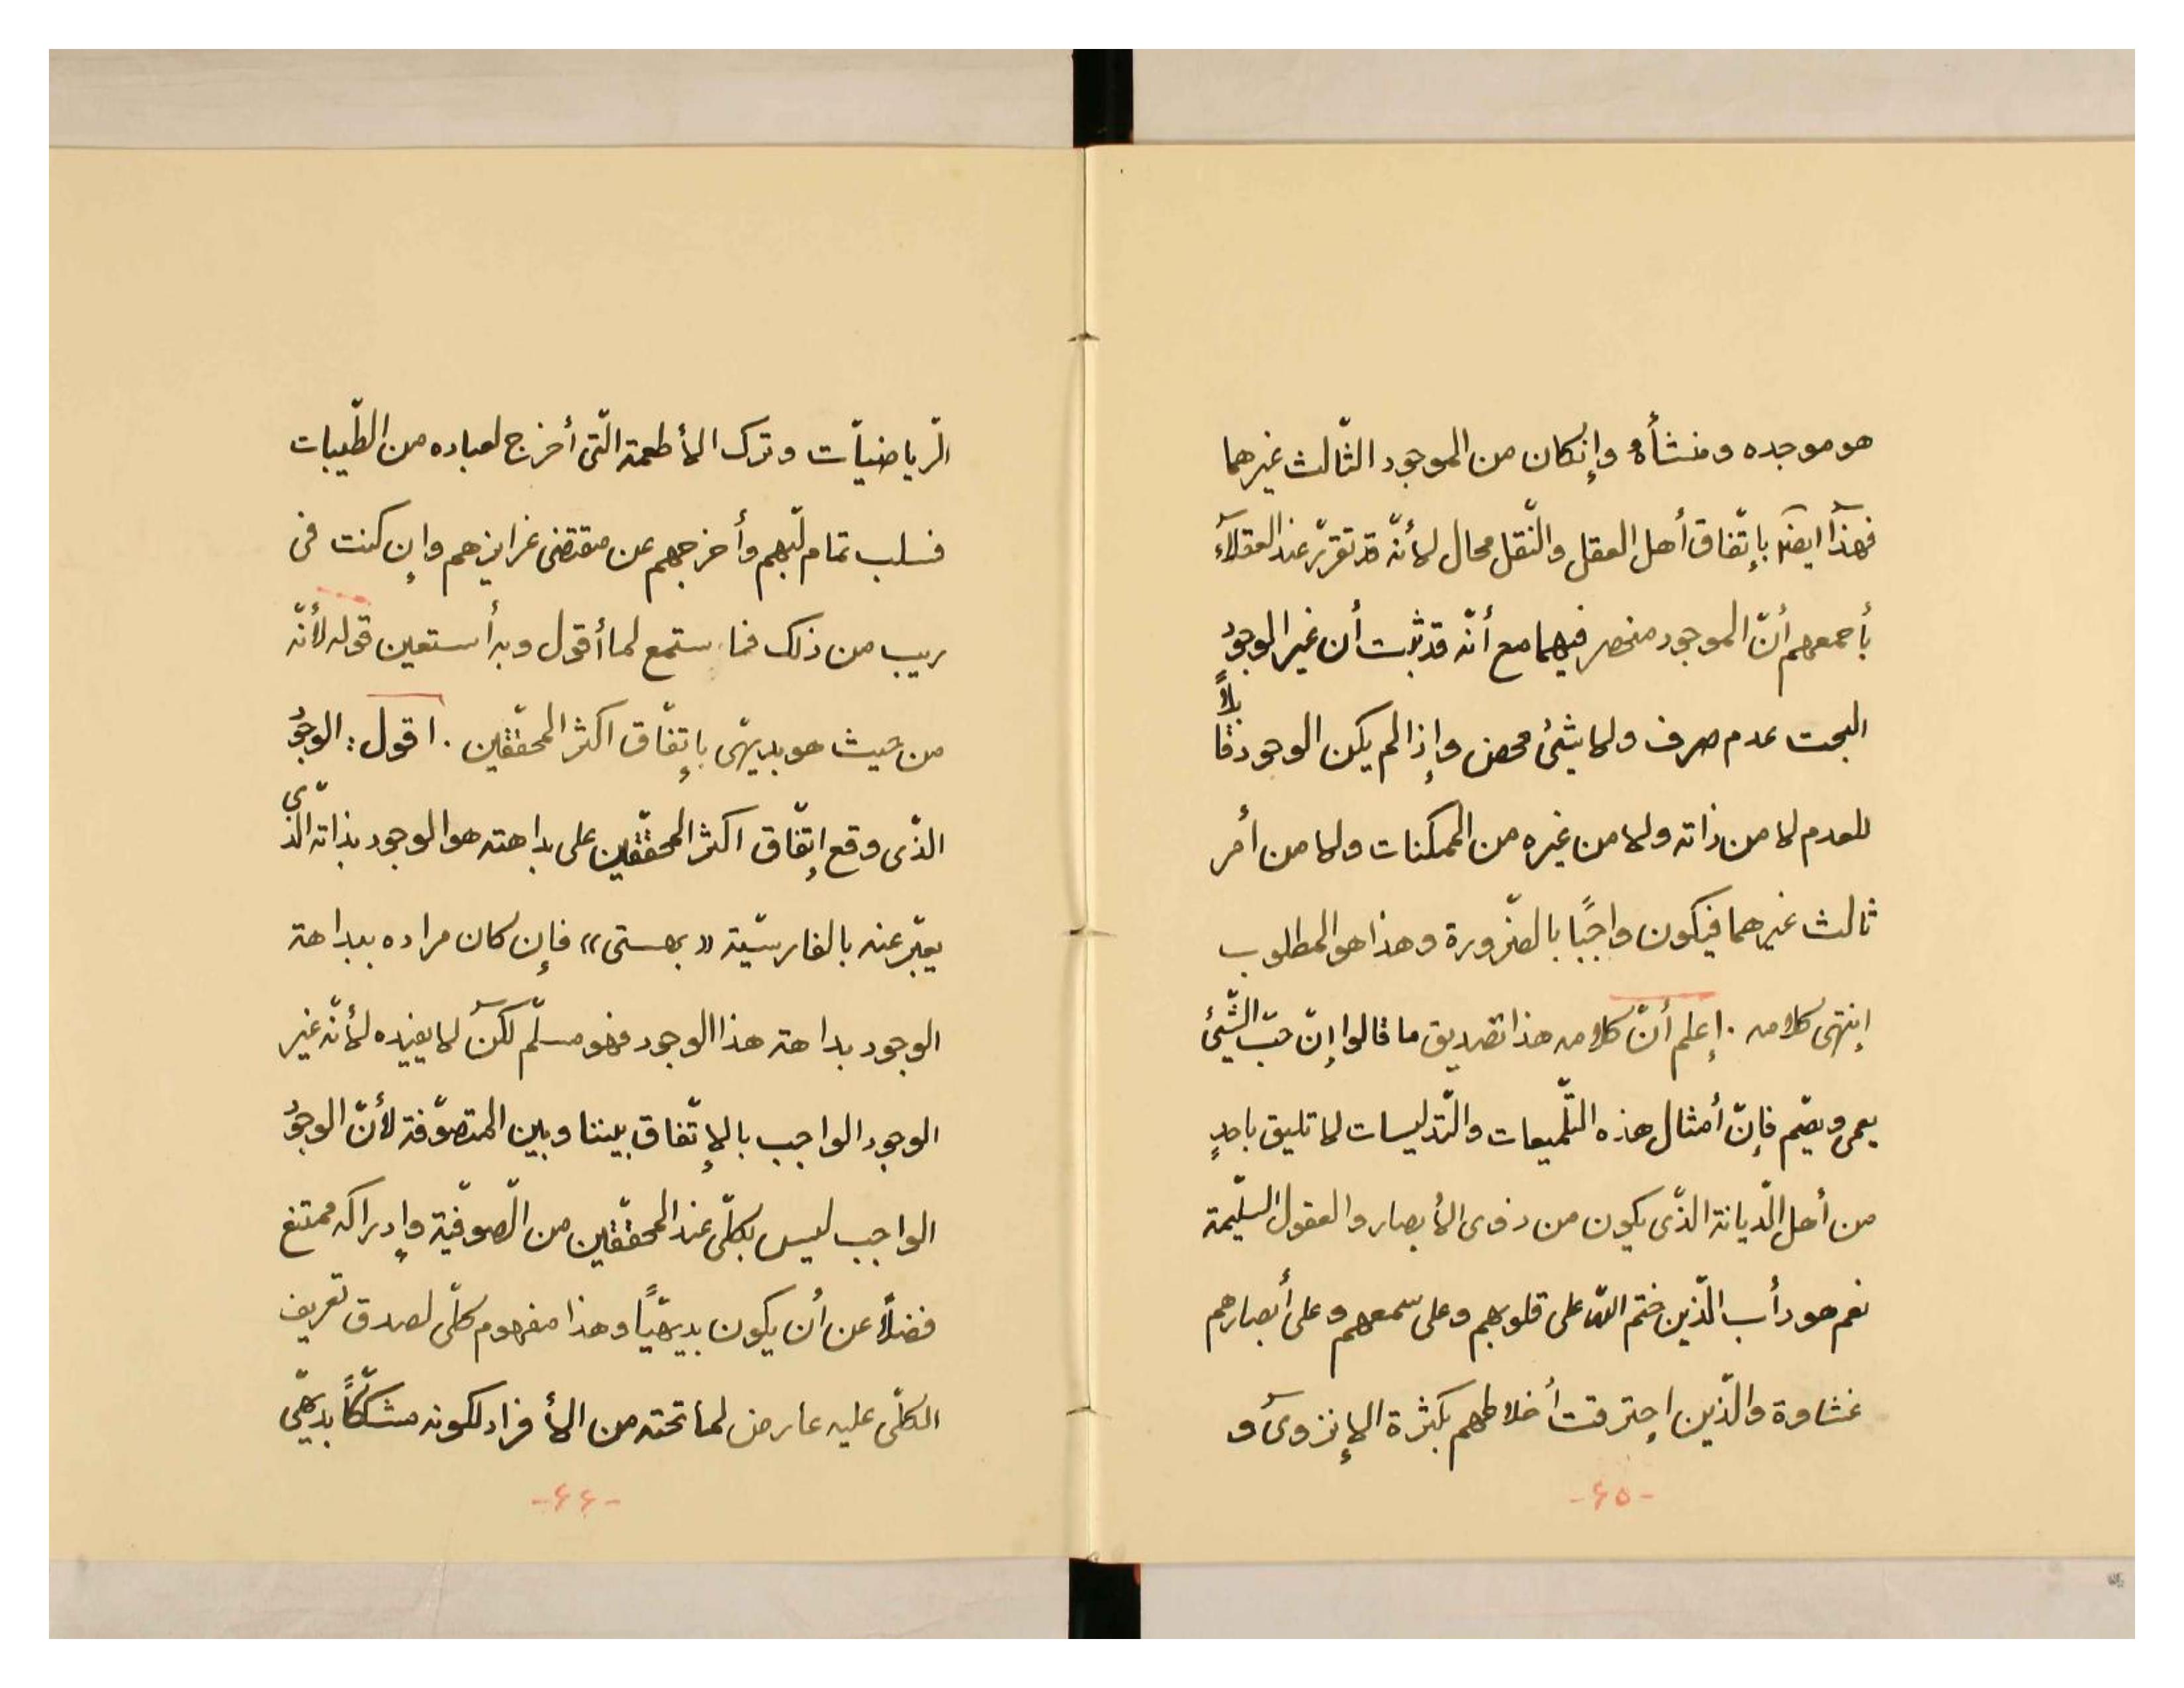 هو موجده و منشأهُ وإنكان من الموجود الثّالث غيرهما
فهذا ايضًا بإتّفاق أهل العقل والنّقل محال لأنّه قد تقرّر عند العقلاء
بأجمعهم أنّ الموجود منحصر فيهما مع أنّه قد ثبت أن غير الوجود
البحت عدم صرف ولا شئ محض وإذا لم يكن الوجود قابلاً
للعدم لا من ذاته ولا من غيره من الممكنات ولا من أمر
ثالث غيرهما فيكون واجبًا بالضّرورة وهذا هو المطلوب
إنتهى كلامه . إعلم أنّ كلامه هذا تصديق ما قالوا إنّ حبّ الشّيئ
يعمى ويصّم فإنّ أمثال هذه التّلميعات والتّدليسات لا تليق باحدٍ
من أهل الدّيانة الذّى يكون من ذوى الأبصار والعقول السّليمة
نعم هو دأب الّذين ختم الله على قلوبهم وعلى سمعهم وعلى أبصارهم
غشاوة والّذين إحترقت أخلاطهم بكثرة الإنزوى و
-۶۵-
الّرياضيّات وترك الأطعمة الّتى أخرج لعباده من الطّيبات
فسلب تمام لبّهم وأخرجهم عن مقتضى غرايزهم وإن كنت فى
ريب من ذلك فاستمع لما أقول وبه أستعين قوله لأنّه
من حيث هو بديهّى بإتفّاق اكثر المحقّقين . اقول : الوجود
الذّى وقع إتفّاق اكثر المحقّقين على بداهته هو الوجود بذاته الذّى
يعبّر عنه بالفارسيّة «بهستى» فإن كان مراده ببداهة
الوجود بداهة هذا الوجود فهو مسلّم لكن لا يفيده لأنّه غير
الوجود الواجب بالإتّفاق بيننا وبين المتصوّفة لأنّ الوجود
الواجب ليس بكلّى عند المحقّقين من الصّوفيّة وإدراكه ممتنع
فضلاً عن أن يكون بديهيًّا وهذا مفهوم كلّى لصدق تعريف
الكلّى عليه عارض لما تحته من الأفراد لكونه مشكّكًا بديهّى
-۶۶-